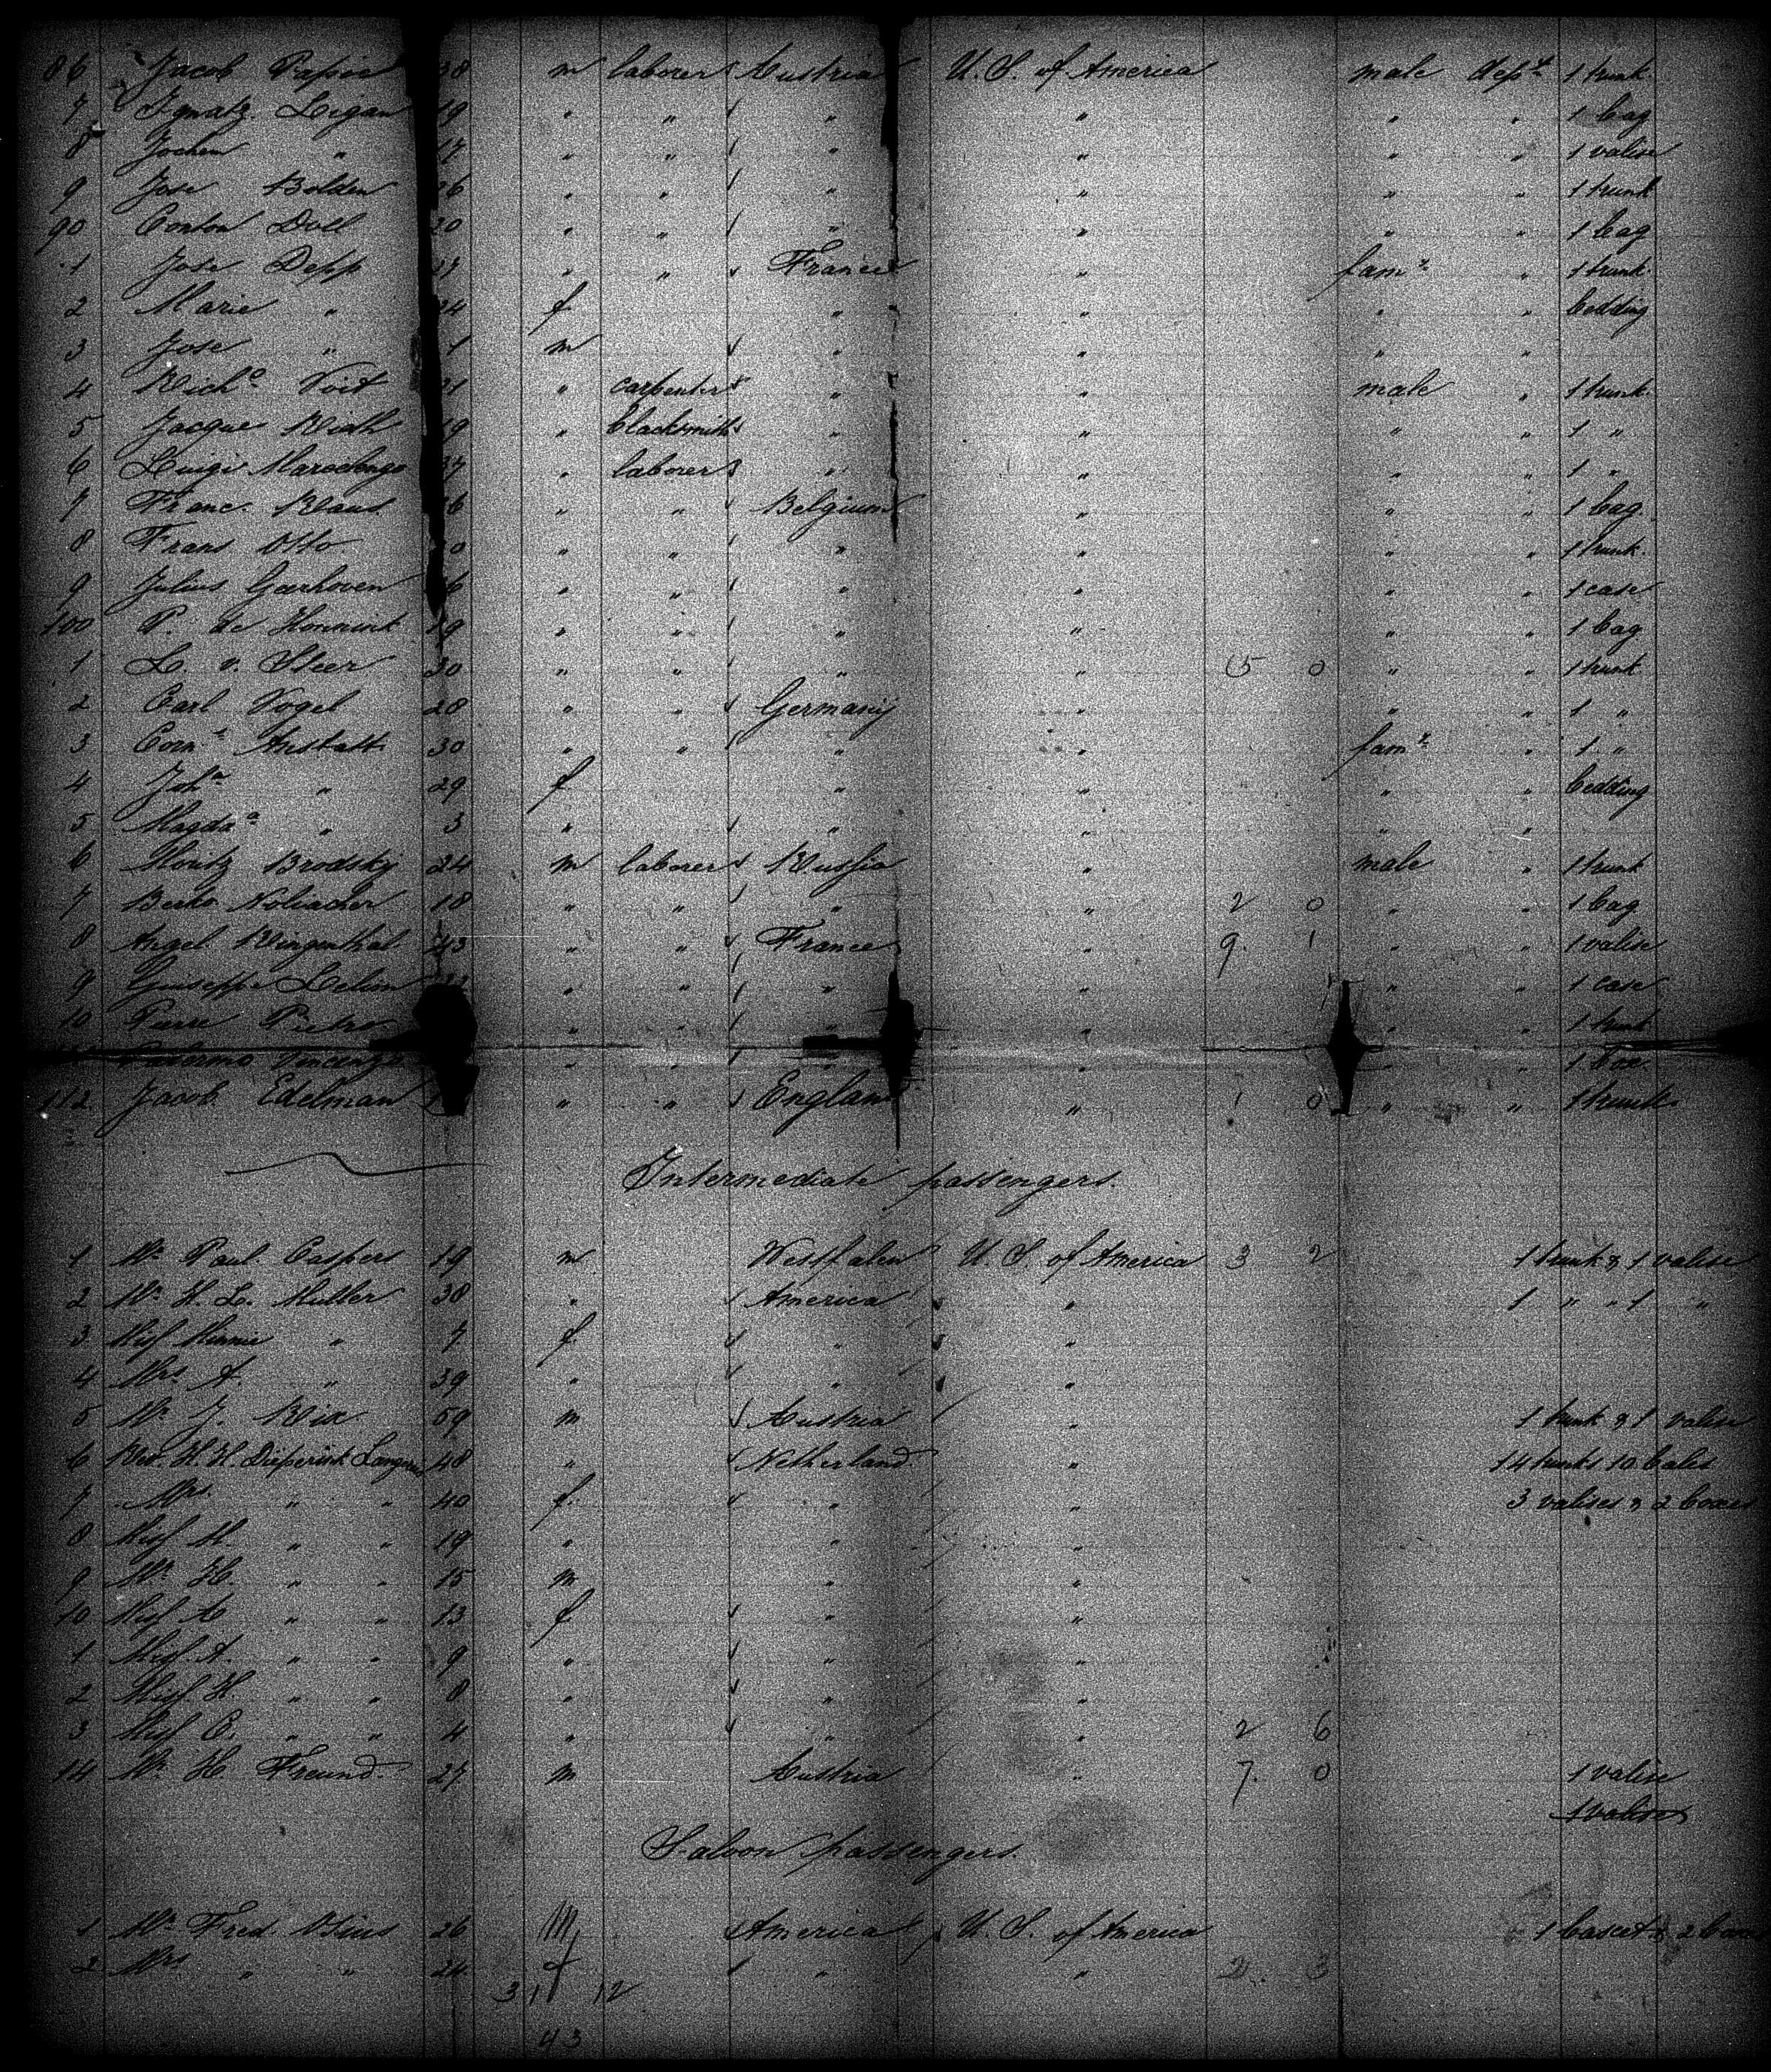 86 Jacob Papic 38 m laborer Austria U. S. of America male dept 1 trunk.
7 Ignatz Ligan 19 " " " " " " 1 bag
8 Jochem " 17 " " " " " " 1 valise
9 Jose Bolden 26 " " " " " " 1 trunk
90 " " " " " " 1 bag
1 Jose Depp 27 " " France " famy " 1 trunk.
2 Marie " 24 f " " " " bedding
3 Jose " 1 m " " " "
4 Richd Voit 31 " carpenter " " male " 1 trunk.
5 Jacque 19 " blacksmith " " " " 1 "
6 Luigi 37 " laborer " " " " 1 "
7 Franc. 6 " " Belgium " " " 1 bag.
8 Frans Otto 0 " " " " " " 1 trunk.
9 Julius Garhoven 6 " " " " " " 1 case
100 P. de Honnink 29 " " " " " " 1 bag
1 L. v. Steer 30 " " " " 5 0 " " 1 trunk
2 Carl Vogel 28 " " Germany " " " 1 "
3 Corns Anstatt 30 " " " " famy " 1 "
4 Joha " 29 f " " " " bedding
5 Magdaa " 3 " " " " "
6 Moritz Brodsky 24 m laborer Russia " male " 1 trunk
7 Berko 18 " " " " 2 0 " " 1 bag
8 Angel Ringenthal 43 " " France " 9 1 " " 1 valise
9 Giuseppe " " " " " " 1 case
10 Pierre Pietro " " " " " " 1 trunk
Palermo Vincenzo " " " " " " 1 box.
112 Jacob Edelman " " England " 1 0 " " 1 trunk.
Intermediate passengers.
1 Mr Paul Caspers 19 m Westfalen U. S. of America 3 2 1 trunk & 1 valise
2 Mr H. L. Muller 38 " America " 1 " " 1 "
3 Miss Minnie " 7 f " "
4 Mrs A. " 39 " " "
5 Mr J. Rix 59 m Austria " 1 trunk & 1 valise
6 Rev. H. H. Dieperink Langereis 48 " Netherland " 14 trunks 10 bales
7 Mrs " " 40 f. " " 3 valises & 2 boxes
8 Miss M. " " 19 " " "
9 Mr H. " " 15 m " "
10 Miss " " 13 f " "
1 Miss A. " " 9 " " "
2 Miss H. " " 8 " " "
3 Miss C. " " 4 " " " 2 6
14 Mr H. Freund. 27 m Austria " 7. 0 1 valise
1 valise
Saloon passengers.
1 Mr Fred. Osius 26 m America U. S. of America 1 bascet & 2 boxes
2 Mrs " " 24 f " " 2 3
31 12
43